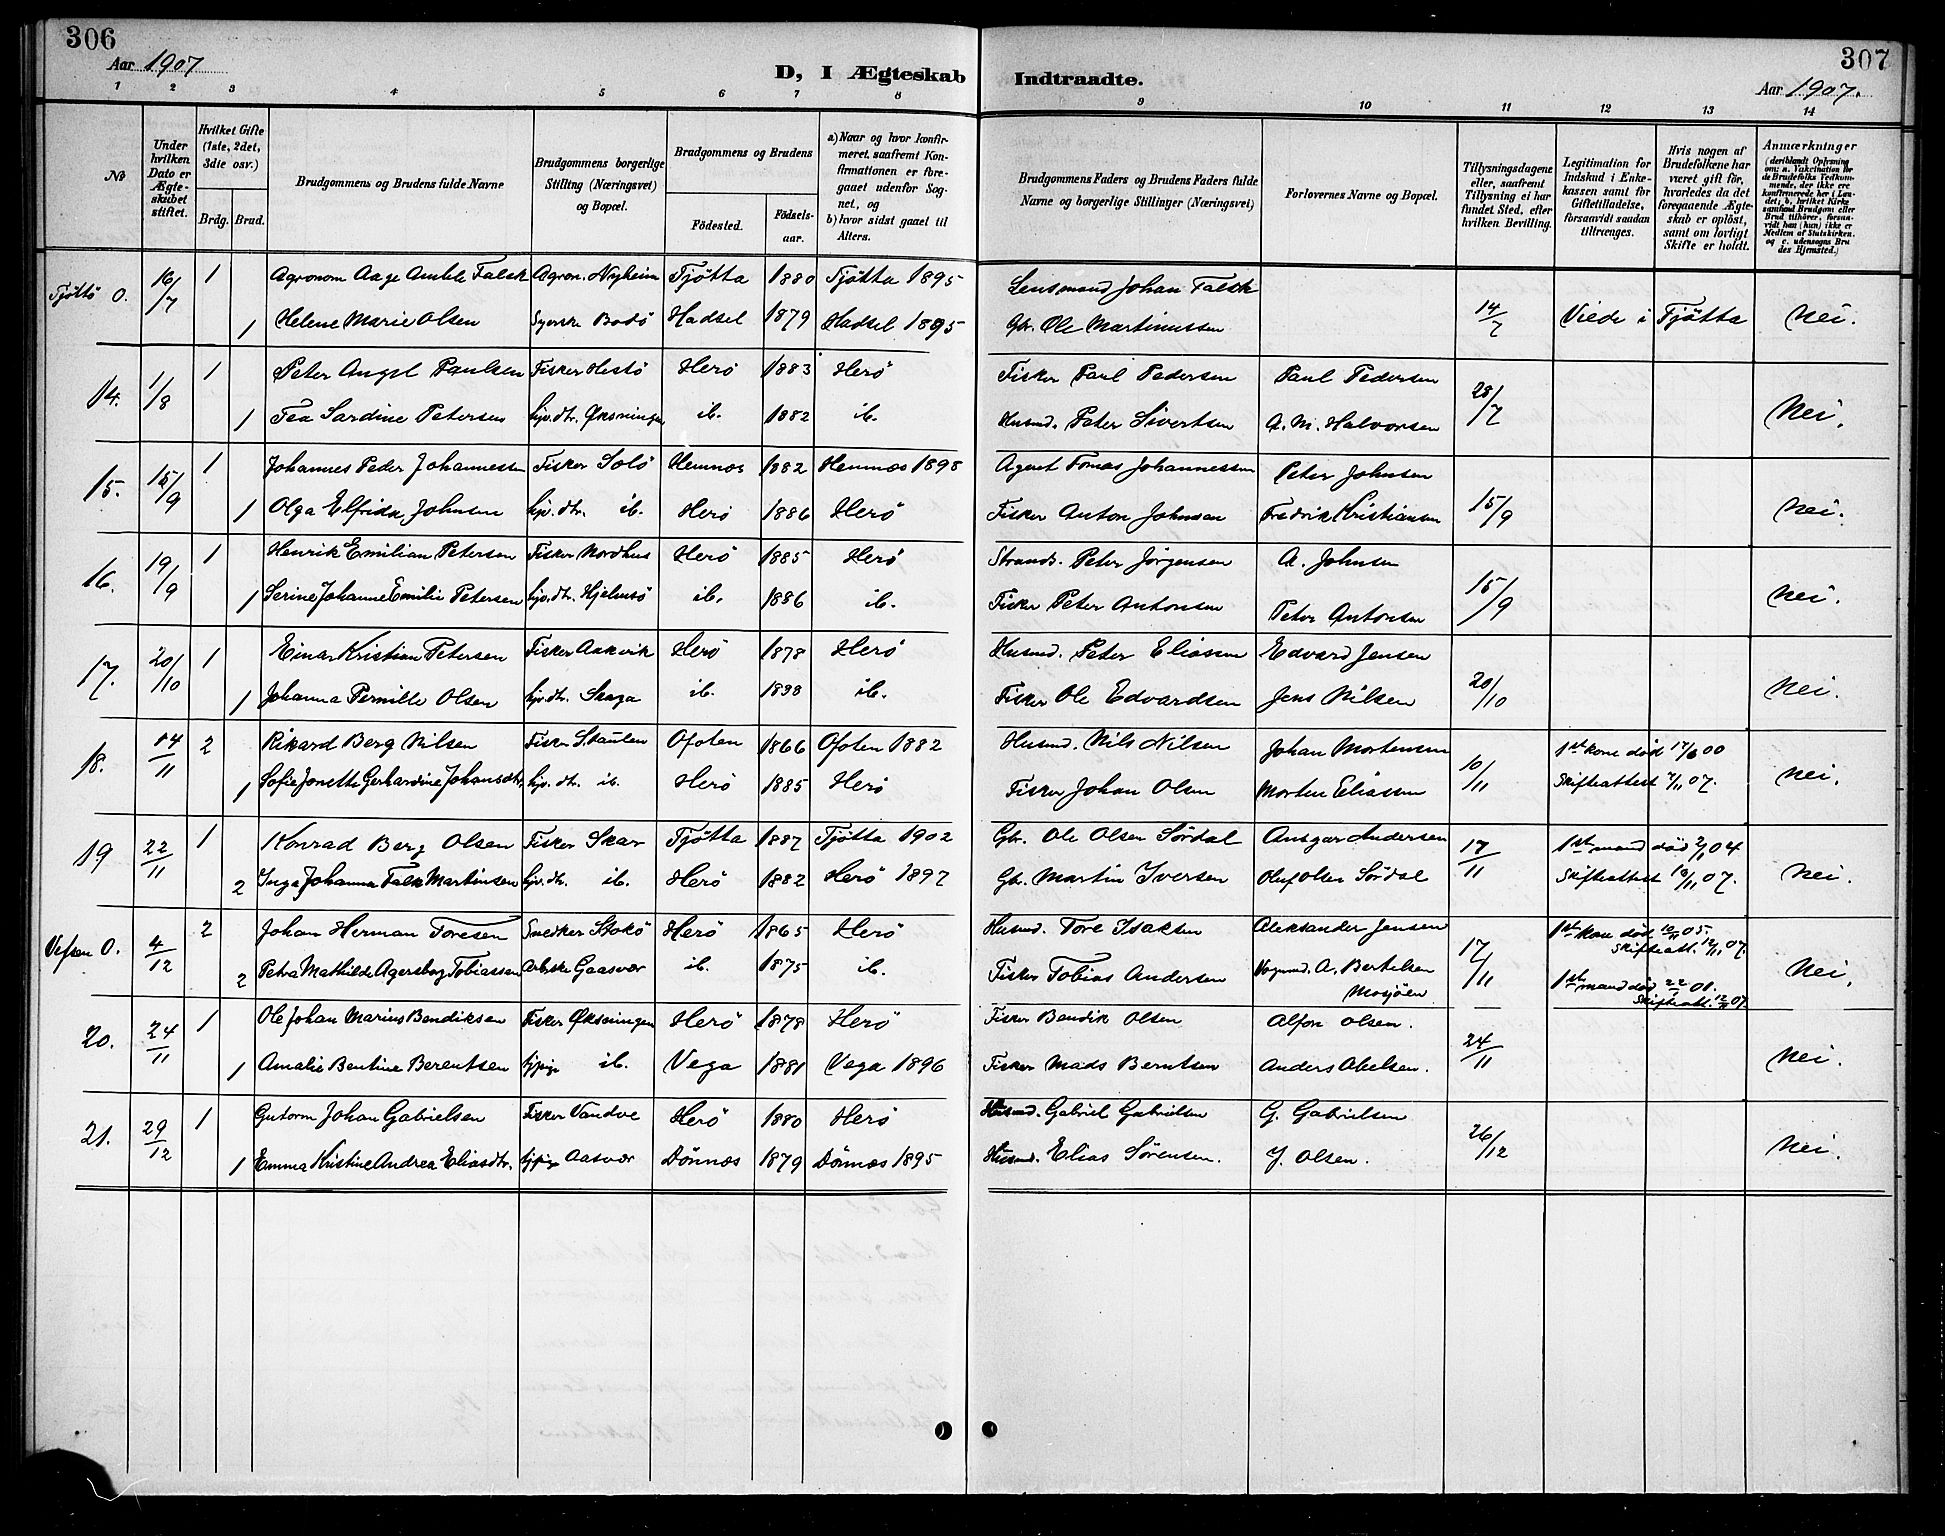 306
Aar 1907
D, I Ægteskab
Indtraadte.
307
Aar 1907.
1 2 3 4 5 6 7 8 9 10 11 12 13 14
No
Under hvilken Dato er Ægteskabet stiftet.
Hvilket Gifte (1ste, 2det, 3die osv.)
Brdg. Brud.
Brudgommens og Brudens fulde Navne
Brudgommens borgerlige Stilling (Næringsvei) og Bopæl.
Brudgommens og Brudens
Födested.
Födsels-aar.
a) Naar og hvor konfirmeret, saafremt Konfirmationen er foregaaet udenfor Sognet, og
b) hvor sidst gaaet til Alters.
Brudgommens Faders og Brudens Faders fulde Navne og borgerlige Stillinger (Næringsvei)
Forlovernes Navne og Bopæl.
Tillysningsdagene eller, saafremt Tillysning ei har fundet Sted, efter hvilken Bevilling.
Legitimation for Indskud i Enkekassen samt for Giftetilladelse, forsaavidt saadan tiltrænges.
Hvis nogen af Brudefolkene har været gift för, hvorledes da det foregaaende Ægteskab er oplöst, samt om lovligt Skifte er holdt.
Anmærkninger
(deriblandt Oplysning om: a. Vakcination for de Brudefolks Vedkommende, der ikke ere konfirmerede her i Landet; b. hvilket Kirkesamfund Brudgom eller Brud tilhører, forsaavidt han (hun) ikke er Medlem af Statskirken, og c. udensogns Brudes Hjemsted.)
Tjøtta O. 16/7 1 Agronom Aage Falck Agron. Nyheim Tjøtta 1880 Tjøtta 1895 Lensmand Johan Falck
1 Helene Marie Olsen Syerske Bodö Hadsel 1879 Hadsel 1895 Gbr. Ole Martinussen 14/7 Viede i Tjøtta Nei.
14. 1/8 1 Peter Angel Paulsen Fisker Hestö Herö 1883 Herö Fisker Paul Pedersen Paul Pedersen 28/7
1 Tea Sardine Petersen hjv. dtr. Øksningen ib. 1882 ib. Husmd. Peter Sivertsen A. M. Halvorsen Nei.
15. 15/9 1 Johannes Peder Johannessen Fisker Solö Hemnes 1882 Hemnæs 1898 Agent Tomas Johannessen Peter Johnsen
1 Olga Elfrida Johnsen hjv. dtr. ib. Herö 1886 Herö Fisker Anton Johnsen Fredrik Kristiansen 15/9 Nei.
16. 19/9 1 Henrik Emilian Petersen Fisker Nordhus Herö 1885 Herö Strands. Peter Jörgensen A. Johnsen
1 Serine Johanne Emilie Petersen hjv. dtr. Hjelmsö ib. 1886 ib. Fisker Peter Antonsen Peter Antonsen 15/9 Nei.
17. 20/10 1 Einar Kristian Petersen Fisker Aakvik Herö 1878 Herö Husmd. Peter Eliassen Edvard Jensen
1 Johanna Pernille Olsen hjv. dtr. Skaga ib. 1888 ib. Fisker Ole Edvardsen Jens Nilsen 20/10 Nei.
18. 14/11 2 Rikard Berg Nilsen Fisker Staulen Ofoten 1866 Ofoten 1882 Husmd. Nils Nilsen Johan Mortensen 10/11 1st kone död 17/6 00
1 Sofie Jonette Gerhardine Johansdtr. hjv. dtr. ib. Herö 1885 Herö Fisker Johan Olsen Morten Eliassen Skifteattest 7/11 07. Nei.
19 22/11 1 Konrad Berg Olsen Fisker Skar Tjøtta 1887 Tjøtta 1902 Gbr. Ole Olsen Sördal Ansgar Andersen 17/11 1st mand död 04
2 Inga Johanna Falk Martinsen hjv. dtr. ib. Herö 1882 Herö 1897 Gbr. Martin Iversen Oluf Olsen Sördal Skifteattest 07. Nei.
Vefsen O. 4/12 2 Johan Herman Toresen Snedker Stokö Herö 1865 Herö Husmd. Tore Isaksen Aleksander Jensen 17/11 1st kone död 05. Skifteatt. 07.
2 Petra Mathilde Agersborg Tobiassen Gaasvær ib. 1875 ib. Fisker Tobias Andersen Vognmd. A. Bertelsen Mosjöen 1st mand död 01. Skifteatt. 07. Nei.
20. 24/11 1 Ole Johan Marius Bendiksen Fisker Øksningen Herö 1878 Herö Fisker Bendik Olsen Alfon Olsen. 24/11
1 Amalie Bentine Berentsen tjpige ib. Vega 1881 Vega 1896 Fisker Mads Berntsen Anders Abelsen. Nei.
21. 29/12 1 Gutorm Johan Gabrielsen Fisker Vandve Herö 1880 Herö Husmd. Gabriel Gabrielsen G. Gabrielsen 26/12
1 Emma Kristine Andrea Eliasdtr. tjpige Aasvær Dönnæs 1879 Dönnæs 1895 Husmd. Elias Sörensen. J. Olsen. Nei.